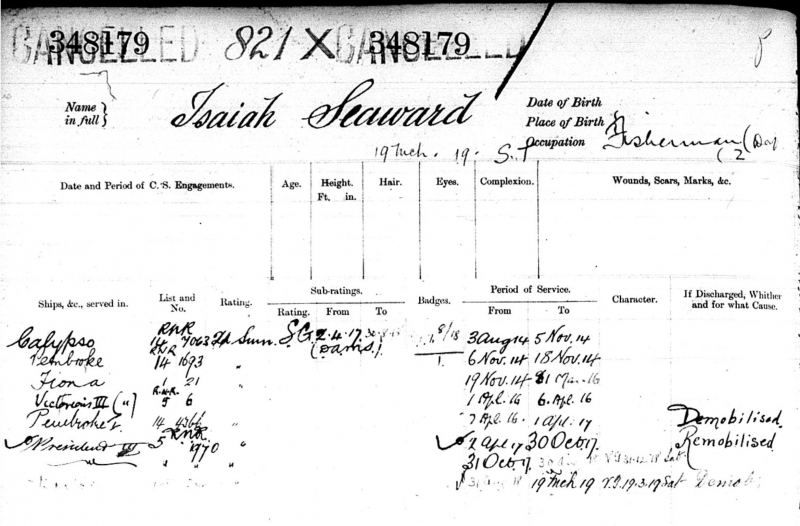 CANCELLED 348179 821 X CANCELLED 348179
Name in full } Isaiah Seaward
Date of Birth
Place of Birth }
Occupation Fisherman
19 Mch. 19. S.
Date and Period of C. S. Engagements. Age. Height. Ft. in. Hair. Eyes. Complexion. Wounds, Scars, Marks, &c.
Ships, &c., served in. List and No. Rating. Sub-ratings. Rating. From To Badges. Period of Service. From To Character. If Discharged, Whither and for what Cause.
Calypso RNR 14 7063 Smn. S.G. 2.4.17 3 Aug 14 5 Nov. 14
Pembroke RNR 14 1693 " (Dams.) 1. 6 Nov. 14 18 Nov. 14
Fiona 1 21 " 19 Nov. 14 31 Mar. 16
Victorious III (") RNR. 5 6 " 1 Apl. 16 6. Apl. 16
Pembroke I 14 4366 " 7 Apl. 16 1 Apl. 17 Demobilised
President III 5 RNR 1970 " 2 Apl 17 30 Oct 17. Remobilised
" 31 Oct. 17
19 Mch 19 V.G. 19.3.19 Sat Demob